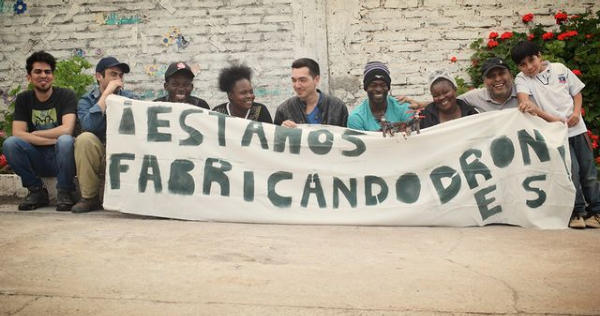 ¡ESTAMOS
FABRICANDO DRON
ES!